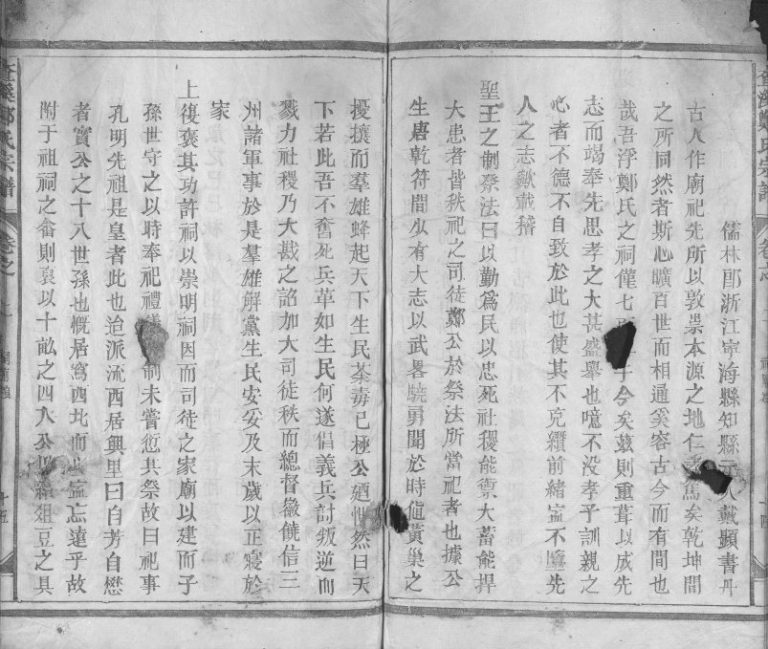 儒林郎浙江寧海縣知縣 人戴顯書丹
古人作廟祀先所以敦崇本源之地仁 篤矣乾坤間
之所同然者斯心曠百世而相通奚容古今而有間也
哉吾浮鄭氏之祠僅七 于今矣茲則重葺以成先
志而竭奉先思孝之大甚盛舉也噫不没孝子訓親之
心者不德不自致於此也使其不克纘前緒寧不墮先
人之志歟載稽
聖王之制祭法曰以勤爲民以忠死社稷能禦大菑能捍
大患者皆秩祀之司徒鄭公於祭法所當祀者也據公
生唐乾符間少有大志以武畧驍勇聞於時值黃巢之
擾攘而羣雄蜂起天下生民荼毒已極公廼惻然曰天
下若此吾不奮死兵革如生民何遂倡義兵討叛逆而
戮力社稷乃大勘之詔加大司徒秩而總督徽饒信三
州諸軍事於是羣雄解黨生民安妥及末歲以正寢於
家
上復褒其功許祠以崇明祠因而司徒之家廟以建而子
孫世守之以時奉祀禮 制未嘗愆其祭故曰祀事
孔明先祖是皇者此也迨派流西居興里曰自芳自懋
者實公之十八世孫也概居寫西北而 寧忘遠乎故
附于祖祠之龕則裒以十畝之四入公以續俎豆之具
鄭氏宗譜
鄭氏宗譜